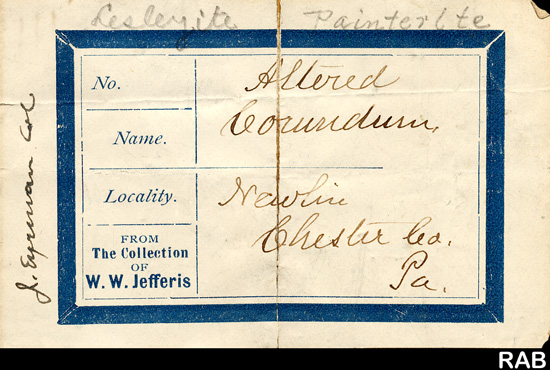 Lesleyite Painterite
No. Altered
Name. Corundum,
Locality. Newlin
Chester Co.
Pa.
FROM
The Collection
OF
W. W. Jefferis
J. Eyerman Col
RAB